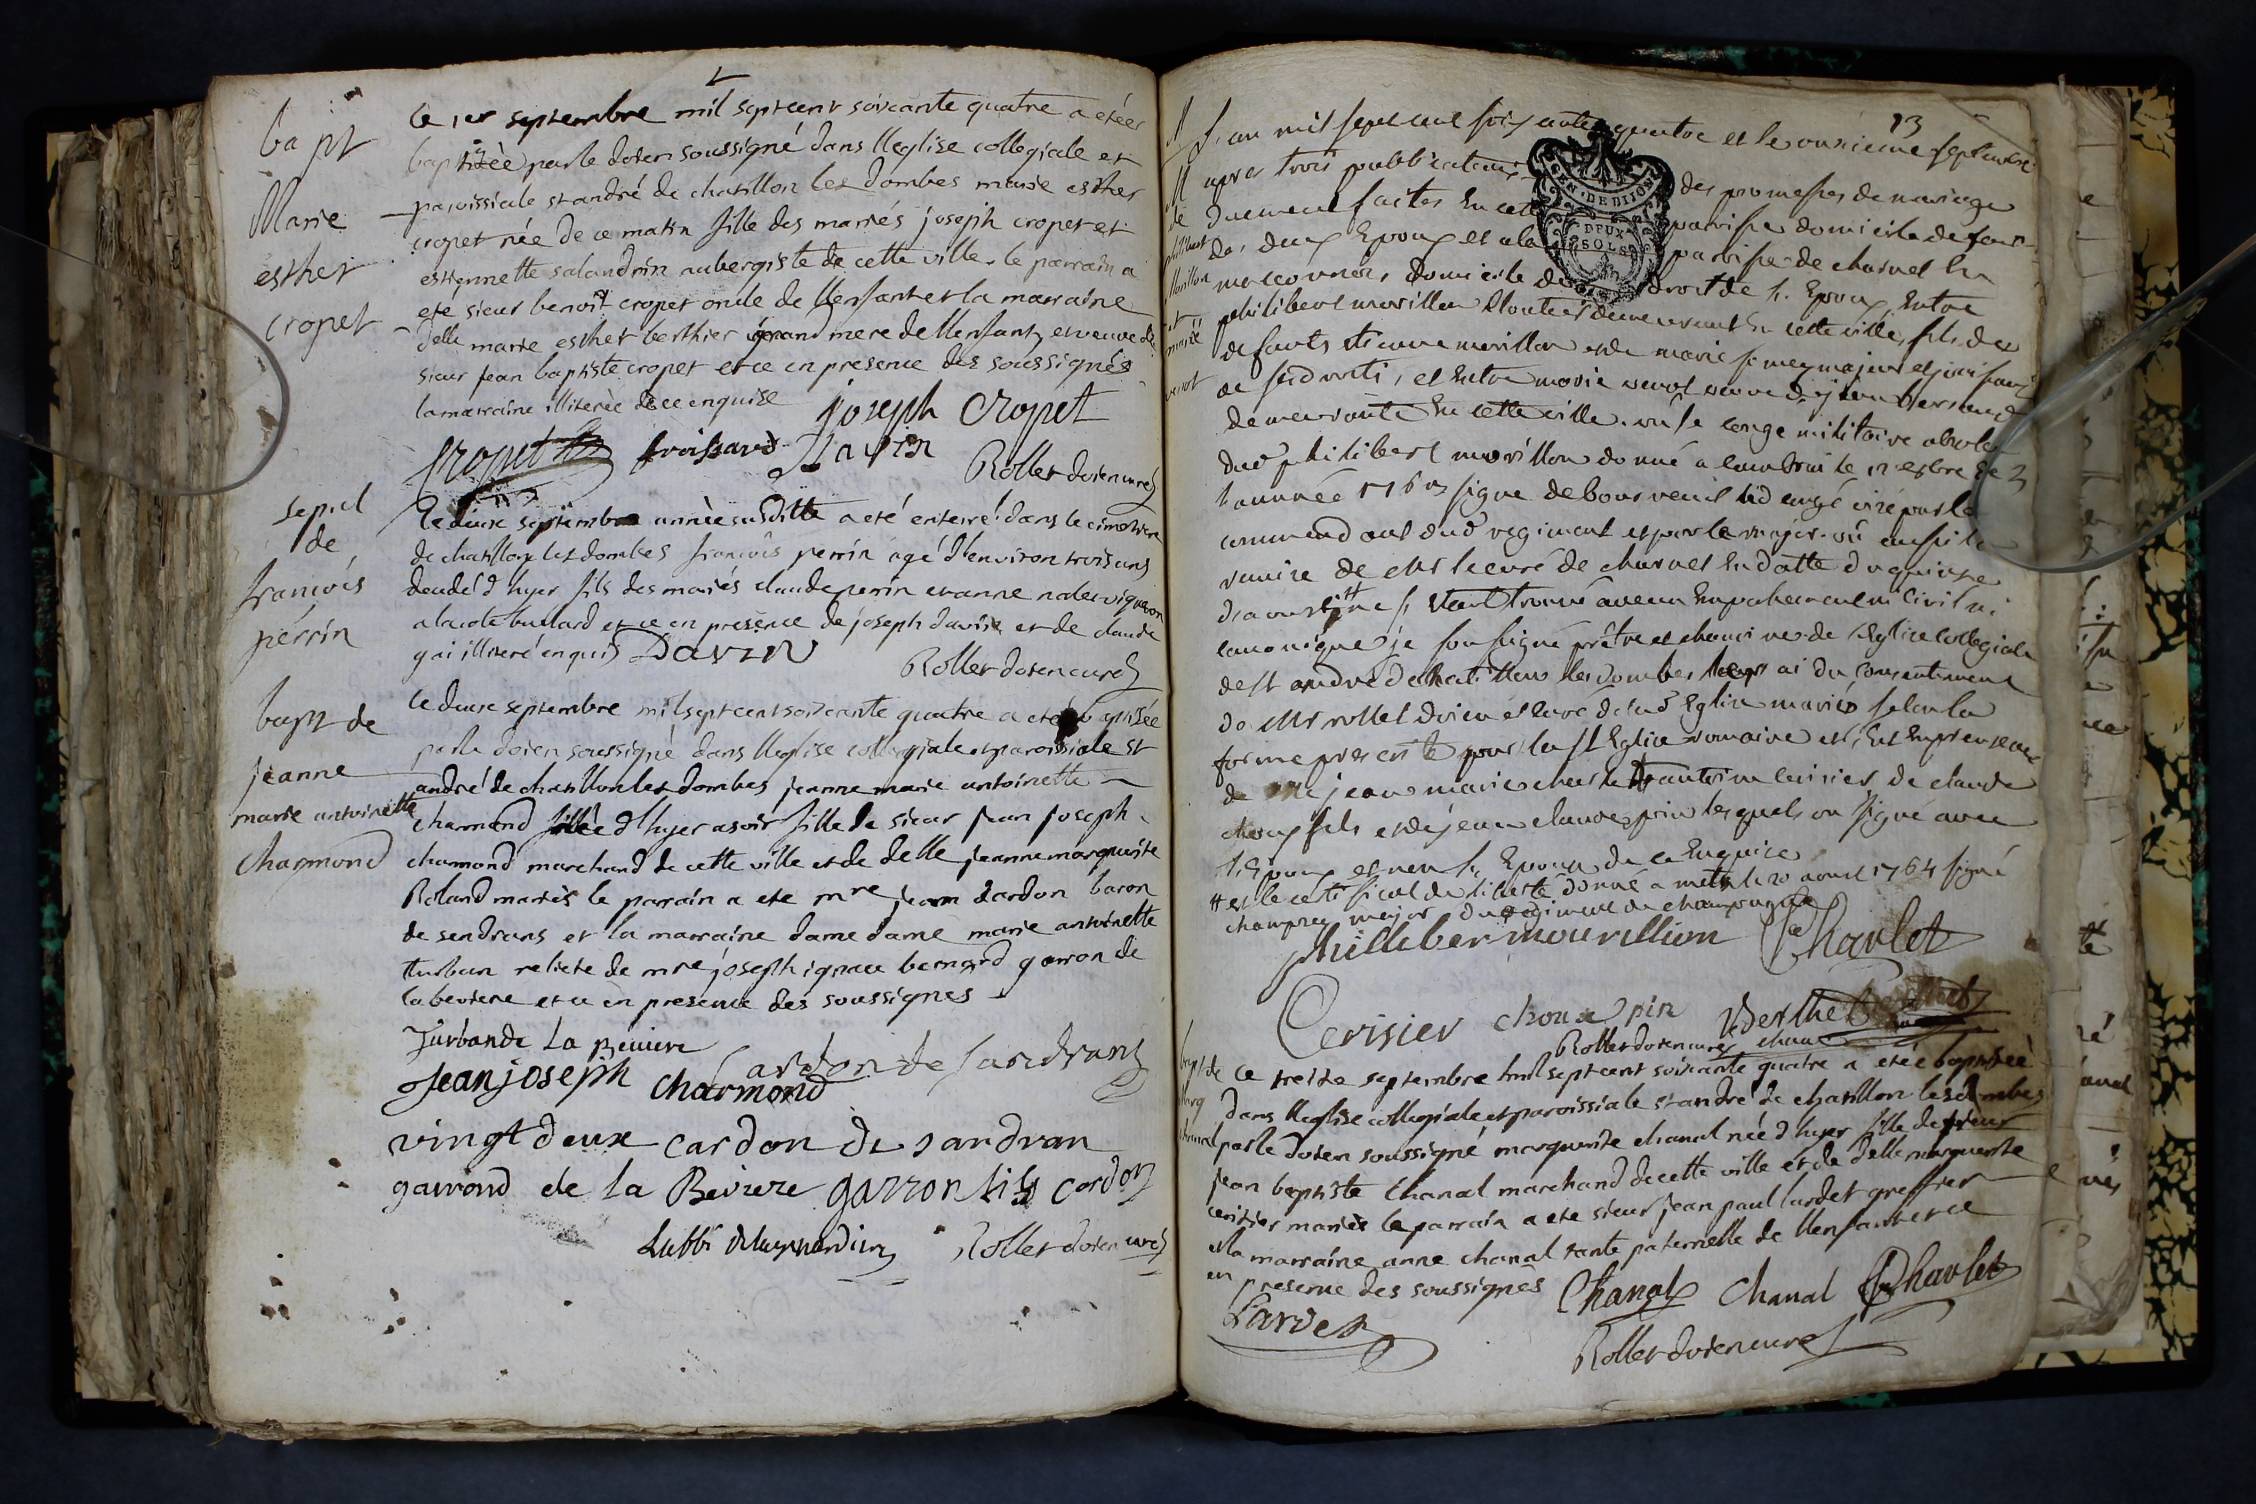 bapt
Marie
esther
cropet
le 1er septembre mil sept cent soixante quatre a etéer
baptizéè par le doien soussigné dans lleglise collegiale et
paroissiale st andré de chatillon les dombes marie esther
cropet née de ce matin fille des mariés joseph cropet et
estiennette salandrin aubergiste de cette ville. le parrain a
eté sieur benoit cropet oncle de llenfant et la marraine
delle marie esther berthier grand mere de llenfant et veuve de
sieur jean baptiste cropet et ce en presence des soussignés
la marraine illiterèe de ce enquise
joseph Cropet
Cropet froissard Davin
Rollet doien curé
sepul
de
francois
perrin
le douze septembre année susditte a eté enterré dans le cimetiere
de chatillon les dombes francois perrin agé d'environ trois ans
decedé d'hyer fils des mariés claude perrin et anne nalet vigneron
a la cote bullard et ce en presence de joseph davin et de claude
gai illiteré enquis Davin
Rollet doien curé
bapt de
jeanne
marie antoinette
Charmond
le douze septembre mil sept cent soixante quatre a eté baptisée
par le doien soussigné dans lleglise collegiale et paroissiale st
andré de chatillon les dombes jeanne marie antoinette
charmond née d'hyer a soir fille de sieur jean joseph
charmond marchand de cette ville et de delle jeanne marguerite
Roland mariés le parrain a ete mre jean cardon baron
de sendrans et la marraine dame dame marie antoinette
turban relicte de mre joseph ignace bernard garron de
la beviere et ce en presence des soussignés
Turban de La Beviere
Jean joseph Charmond Cardon de Sandrans
vingt deux cardon de sandran
garrond de la Beviere garron fils cordon
Rollet doien curé
13
L'an mil sept cent soixante quatre et le onzieme septembre
apres trois publications des promesses de mariage
duement faites en cette paroisse domicile de fait
des deux Epoux et a la paroisse de charnet en
masconnois, domicile de droit de l. Epoux, Entre
philibert morillon demeurant En cette ville, fils des
defunts etienne morillon et de marie majeur et jouissant
de ses droits, et Entre marie venot veuve de
demeurante En cette ville. vû le congé militaire absolu
dud philibert morillon donné a le 12 de
l'année 176 signé debourneuil led congé visé par le
commendant dud regiment et par le major. vû ensuite
remise de Mr le curé de charnet En datte du quinze
d'aoust # ne s'etant trouvé aucun Empechement civil ni
canonique je soussigné prêtre et chanoine de l'Eglise collegiale
de st andré de chatillon les dombes les ai du consentement
de Mr rollet doien et curé de lad Eglise mariés selon la
forme prescrite par la st Eglise romaine et ce En presence
de jean marie charlet antoine cerisier de claude
choux fils et de jean claude pin lesquels on signé avec
l'Epoux et non l. Epouse de ce Enquise
# et le certificat de liberté donné a metz le 20 aoust 1764 signé
champrey major du regiment de champagne
philliber mourillion Charlet
Cerisier choux pin Berthet
Rollet doien curé
bapt de
marg
chanal
le treize septembre mil sept cent soixante quatre a etée baptizéè
dans lleglise collegiale et paroissiale st andré de chatillon les dombes
par le doien soussigné marguerite chanal née d'hyer fille de sieur
jean baptiste Chanal marchand de cette ville et de delle marguerite
cerisier mariés le parrain a ete sieur jean paul lardet greffier
et la marraine anne chanal tante paternelle de llenfant et ce
en presence des soussignés Chanal Chanal Charlet
Lardet
Rollet doien curé
DEUX
SOLS